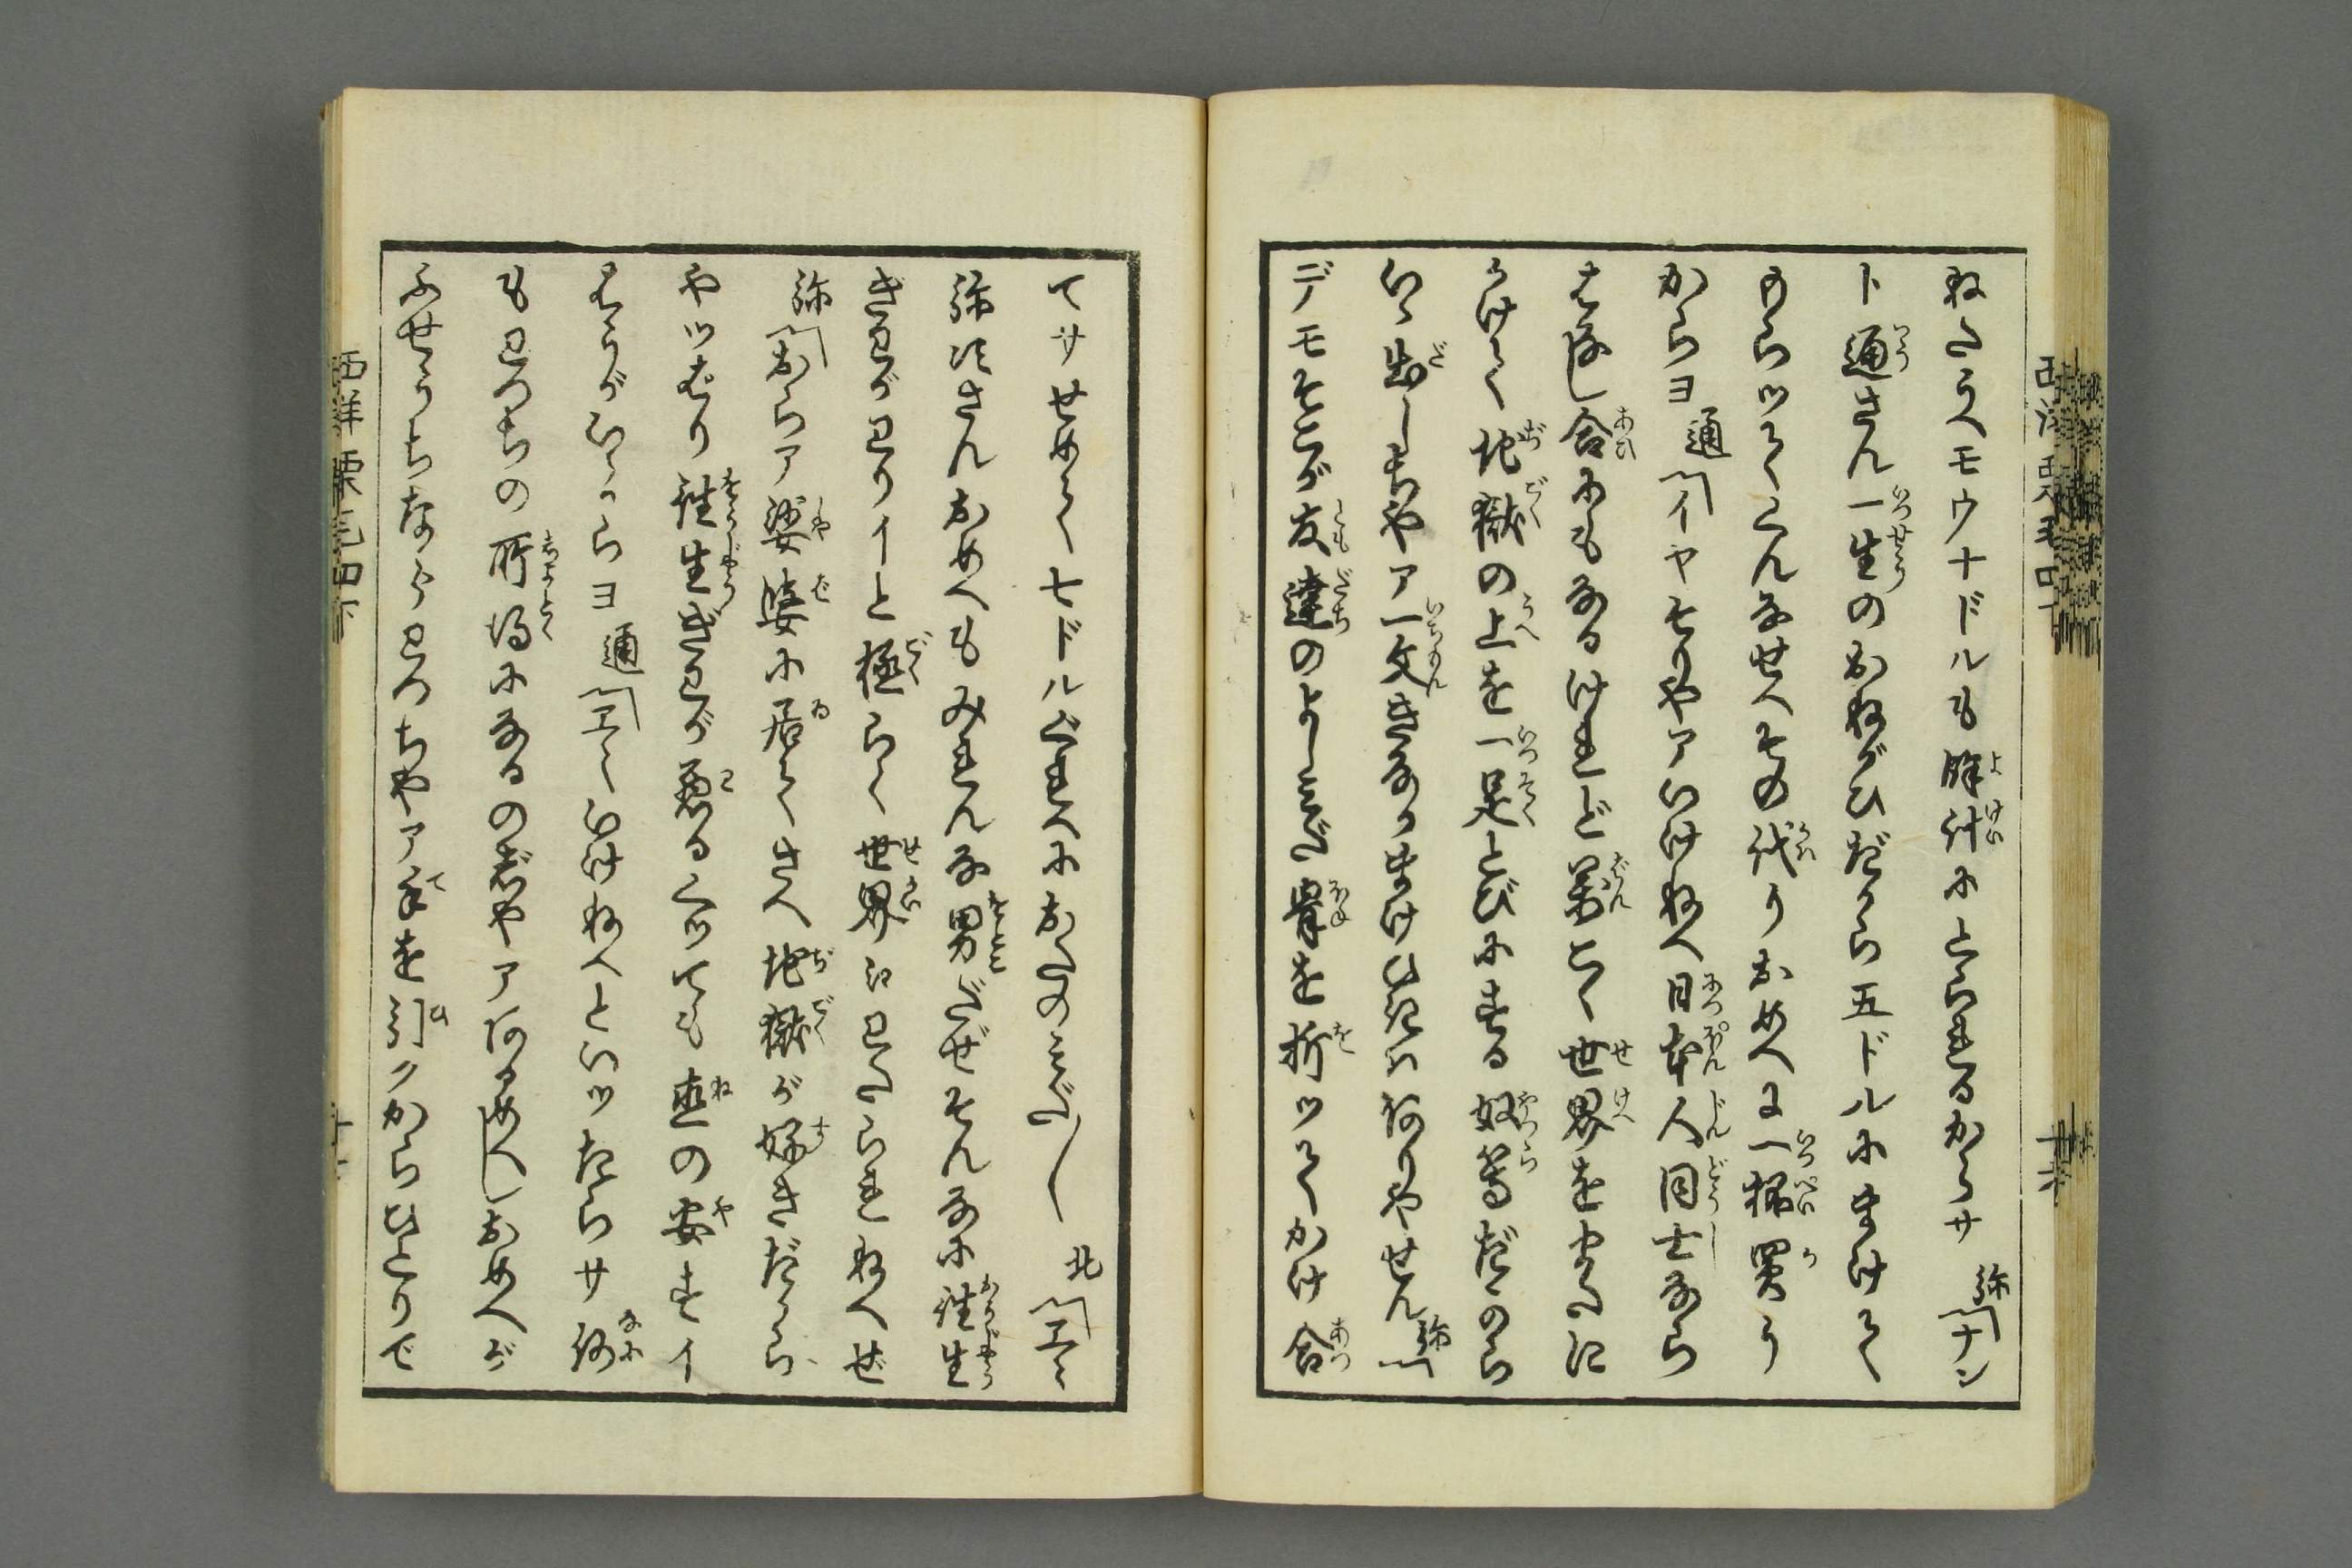 ねへうへモウナドルも餘計にとられるからサ 弥「ナン
ト通さん一生のおねがひだから五ドルにまけて
もらツてくんなせへその代りおめへに一杯買う
からヨ 通「イヤそりやアいけねへ日本人同士なら
はなし合にもなるけれど萬こく世界をまたに
かけて地獄の上を一足とびにする奴等だから
いひ出しちやア一文きなかまけひきはありやせん 弥「
デモそこが友達のよしみで骨を折ツてかけ合
てサせめて七ドルぐれへにおたのみだ〳〵 北「エヽ
弥次さんおめへもみれんな男だぜそんなに往生
ぎわがわりイと極らく世界はわたられねへぜ
弥「おらア娑婆に居てさへ地獄が好きだから
やツぱり往生ぎわが悪るくツても直の安すイ
はうがいゝからヨ 通「エヽいけねへといツたらサ何
もわつちの所得になるのぢやアありめへしおめへが
ふせうちならわつちやア手を引クからひとりで
西洋栗毛四下